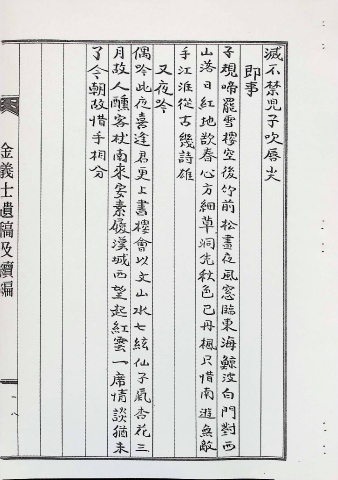 滅不禁兒子吹唇尖
即事
子規啼罷雪樓空後竹前松畫夜風窓臨東海鯨波白門對西
山落日紅地欲春心方細草洞先秋色已丹楓只惜南遊無敵
手江淮從古幾詩雄
又夜吟
偶吟此夜喜逢君更上書樓會以文山水七絃仙子氣杏花三
月故人醺客杖南來安素履漢城西望起紅雲一席情談猶未
了今朝故惜手相分
金義士遺稿及續編
一八